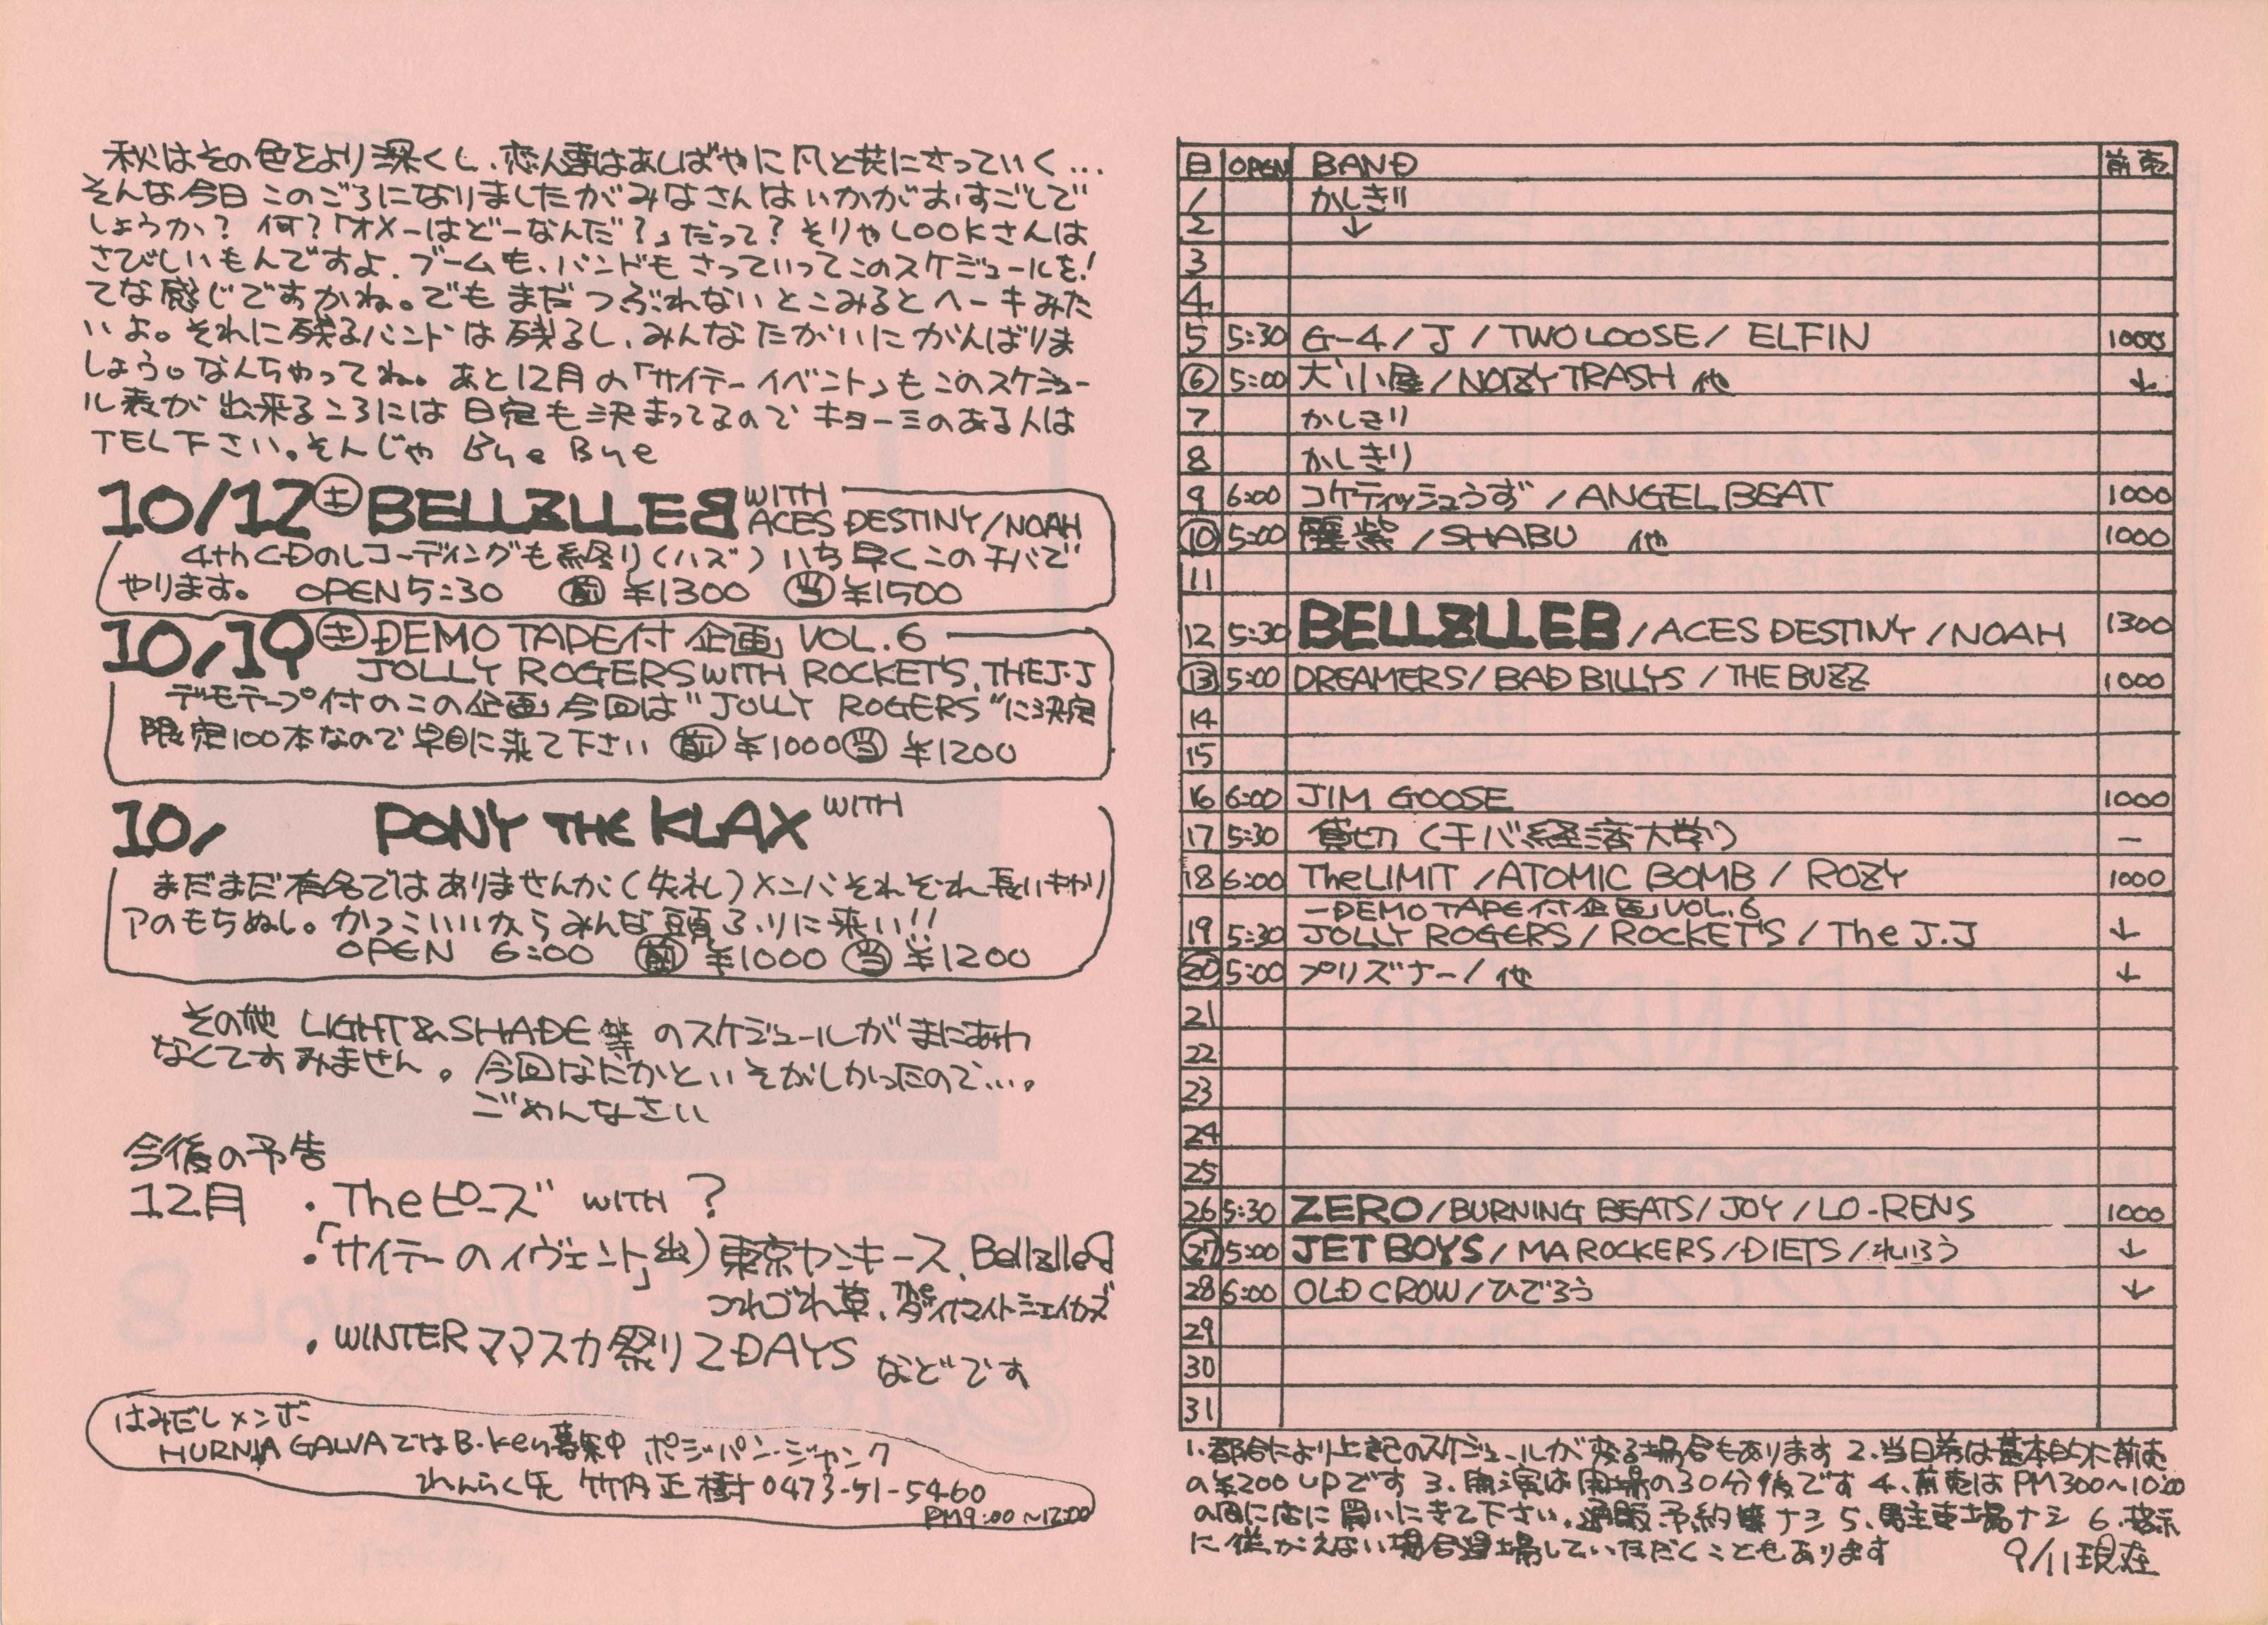 秋はその色をより深くし、恋人達はあしばやに風と共にさっていく…
そんな今日このごろになりましたがみなさんはいかがおすごしで
しょうか？ 何？「オメーはどーなんだ？」だって？そりゃLOOKさんは
さびしいもんですよ。ブームも、バンドもさっていってこのスケジュールを！
てな感じですかね。でもまだつぶれないとこみるとヘーキみた
いよ。それに残るバンドは残るし、みんなたがいにがんばりま
しょう。なんちゃってね。あと12月の「サイテーイベント」もこのスケジュー
ル表が出来るころには日定も決まってるのでキョーミのある人は
TEL下さい。そんじゃ Bye Bye
10/12㊏ BELLZLLEB WITH
ACES DESTINY/NOAH
4th CDのレコーディングも終り(ハズ) いち早くこのチバで
やります。 OPEN5:30 ㊞ ¥1300 当 ¥1500
10/19㊏ DEMO TAPE付企画 VOL.6
JOLLY ROGERS WITH ROCKET'S, THE J.J
デモテープ付のこの企画今回は"JOLLY ROGERS"に決定
限定100本なので早目に来て下さい 前 ¥1000 当 ¥1200
10/ PONY THE KLAX WITH
まだまだ有名ではありませんが(失礼)メンバそれぞれ長いキャリ
アのもちぬし。かっこいいからみんな頭ふりに来い!!
OPEN 6:00 前 ¥1000 当 ¥1200
その他 LIGHT&SHADE等のスケジュールがまにあわ
なくてすみません。今回なにかといそがしかったので…。
ごめんなさい
今後の予告
12月 ・Theピーズ WITH ?
・「サイテーのイヴェント」出)東京ヤンキース、BellzlleB
つれづれ草、Theダイナマイトシェイカーズ
・WINTERママスカ祭り2DAYS などです
はみだしメンボ
HURNIA GALVAではB.Key募集中 ポジパン、ジャンク
れんらく先 竹内正樹 0473-51-5460
PM9:00~12:00
日 OPEN BAND 前売
1 かしきり
2 ↓
3
4
5 5:30 G-4/J/TWO LOOSE/ELFIN 1000
⑥ 5:00 犬小屋/NOIZY TRASH 他 ↓
7 かしきり
8 かしきり
9 6:00 コケティッシュうず/ANGEL BEAT 1000
⑩ 5:00 /SHABU 他 1000
11
12 5:30 BELLZLLEB/ACES DESTINY/NOAH 1300
⑬ 5:00 DREAMERS/BAD BILLYS/THE BUZZ 1000
14
15
16 6:00 JIM GOOSE 1000
17 5:30 貸切 (千バ経済大学) ー
18 6:00 The LIMIT/ATOMIC BOMB/ROZY 1000
ーDEMO TAPE付企画 VOL.6
19 5:30 JOLLY ROGERS/ROCKET'S/The J.J ↓
⑳ 5:00 プリズナー/他 ↓
21
22
23
24
25
26 5:30 ZERO/BURNING BEATS/JOY/LO-RENS 1000
㉗ 5:00 JET BOYS/MA ROCKERS/DIETS/れいろう ↓
28 6:00 OLD CROW/ひでろう ↓
29
30
31
1.都合により上記のスケジュールが変る場合もあります 2.当日券は基本的に前売
の¥200UPです 3.開演は開場の30分後です 4.前売はPM3:00~10:00
の間に店に買いにきて下さい。通販予約等ナシ 5.駐車場ナシ 6.指示
に従がえない場合退場していただくこともあります
9/11現在